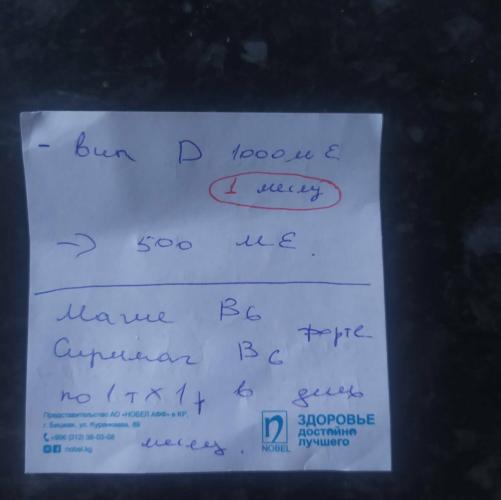 - вит D 1000 МЕ
1 месяц
→ 500 МЕ.
Магне B6
форте
B6
по 1 т х 1 р в день
месяц.
Представительство АО «НОБЕЛ АФФ» в КР,
г. Бишкек, ул. 89
+996 (312) 38-03-08
nobel.kg
n
NOBEL
ЗДОРОВЬЕ
достойно
лучшего